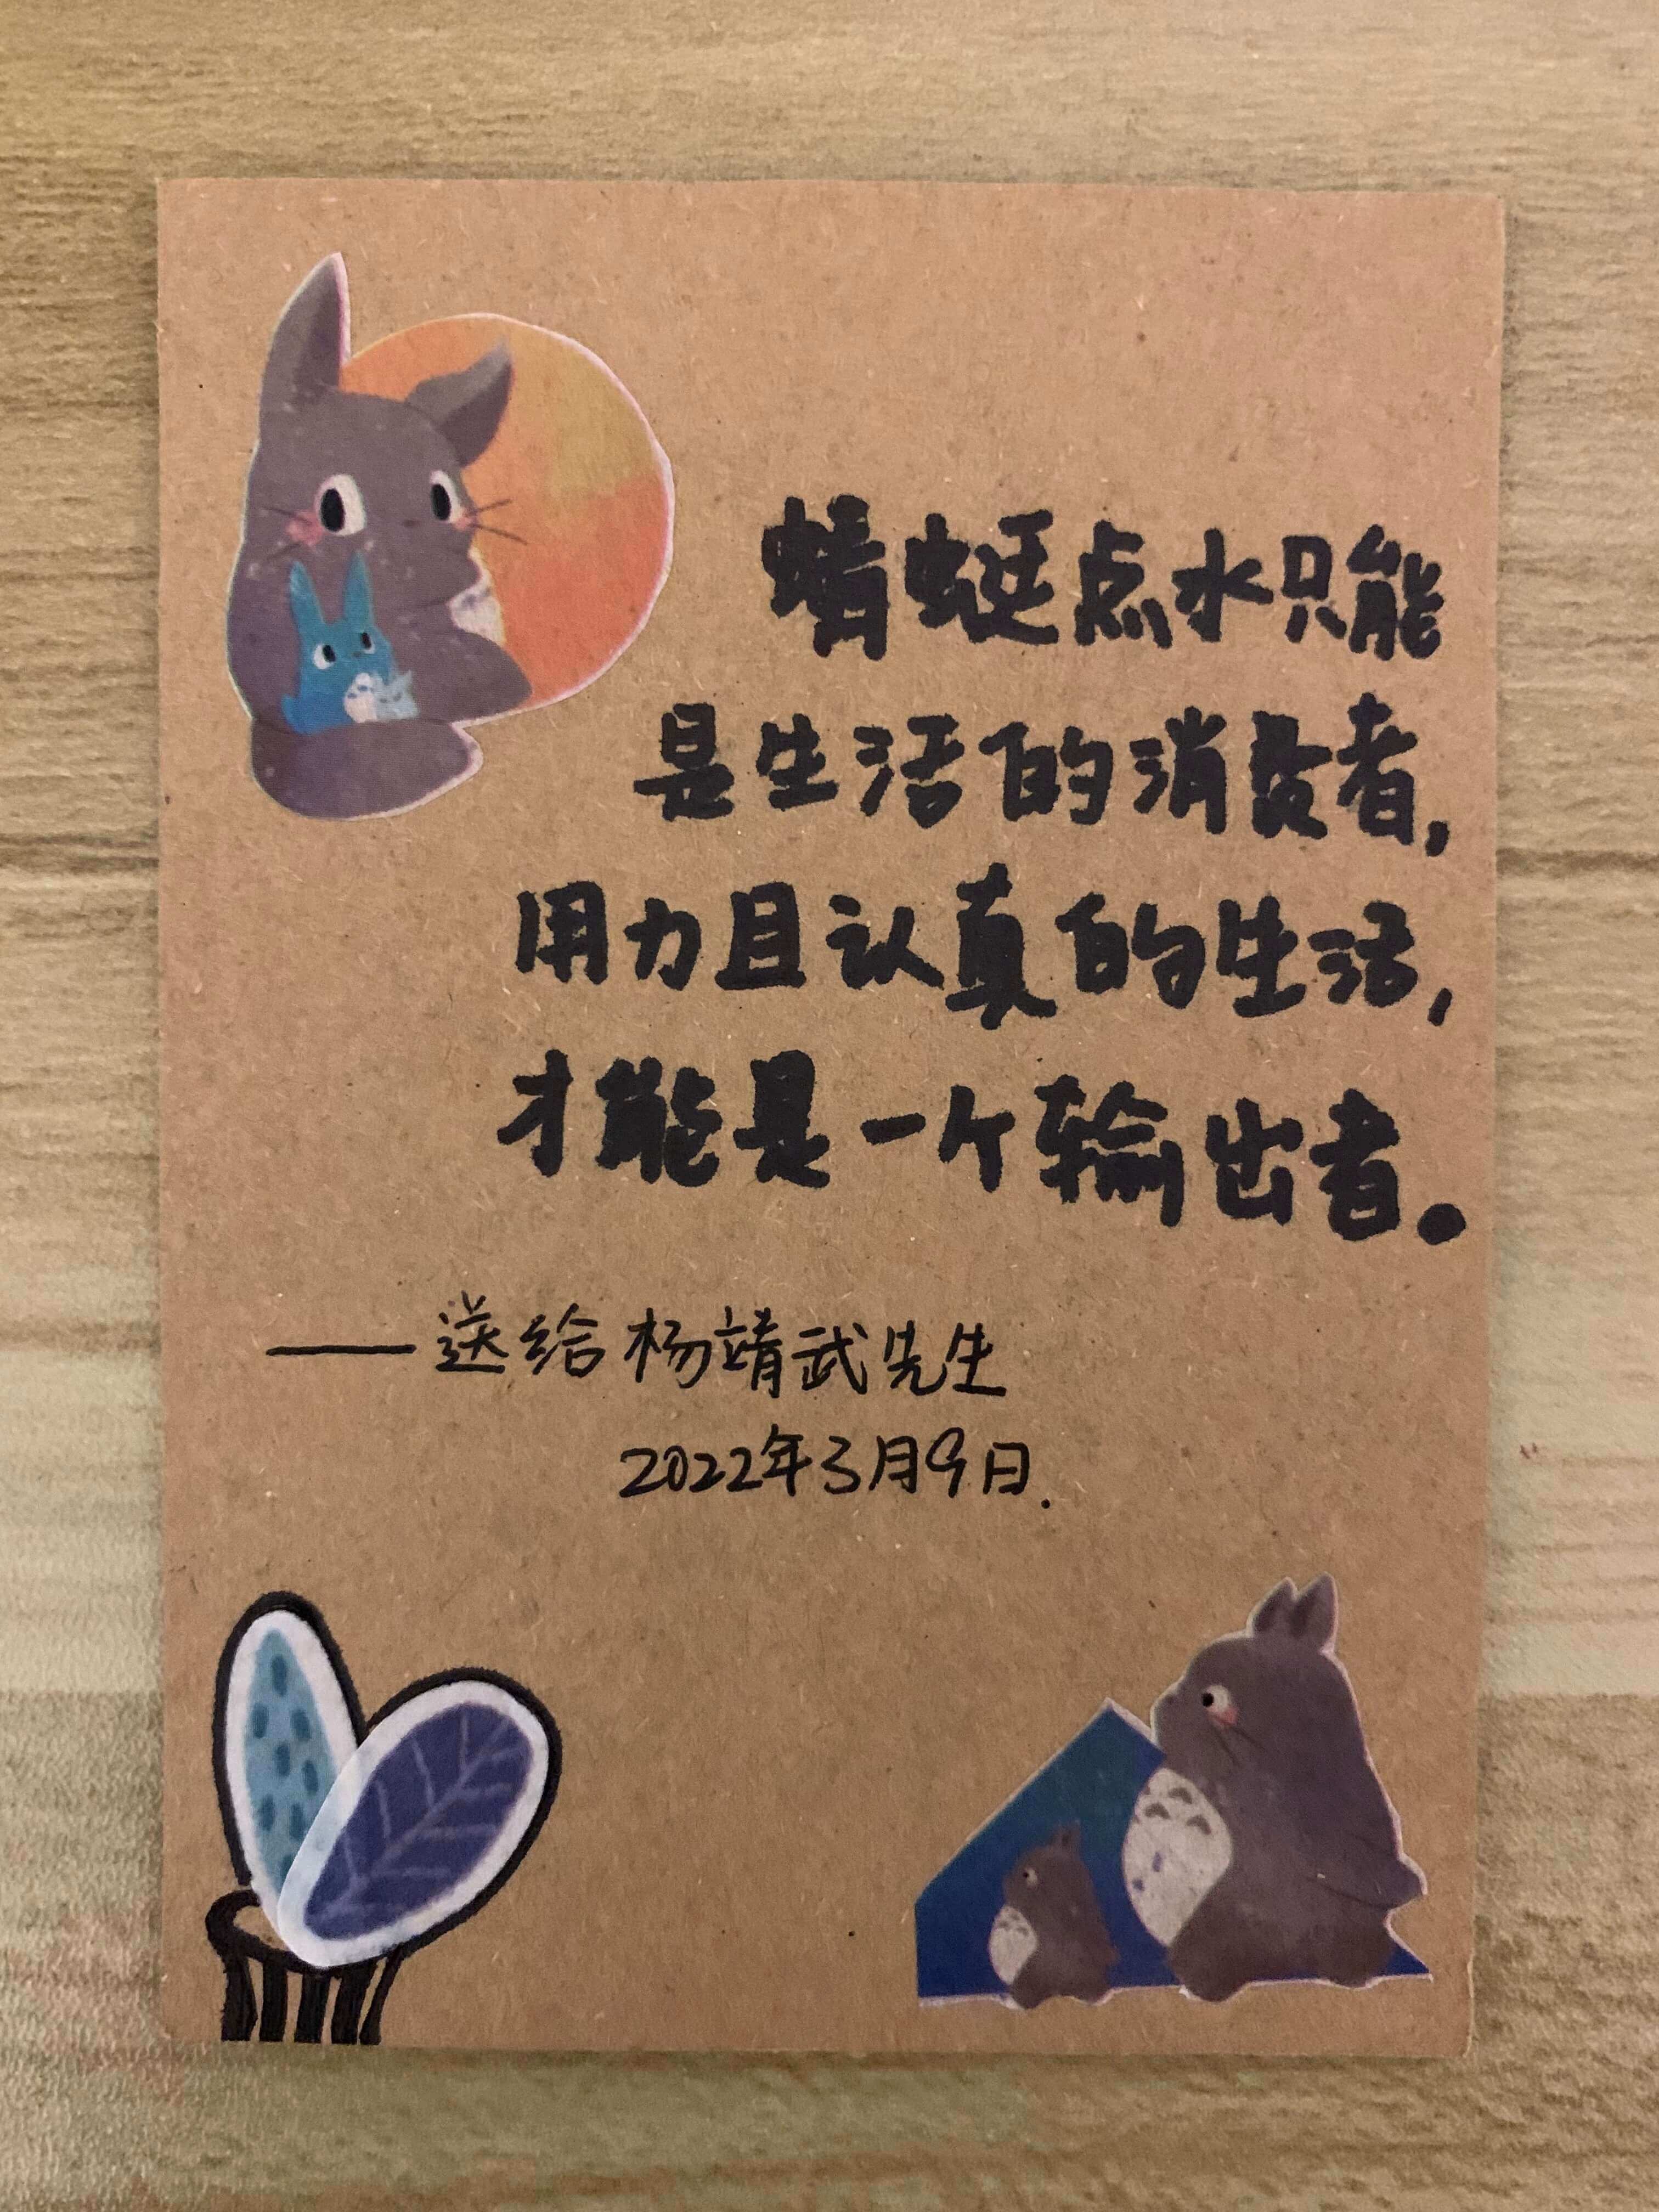 蜻蜓点水只能
是生活的消费者,
用力且认真的生活,
才能是一个输出者。
——送给杨靖武先生
2022年3月9日.